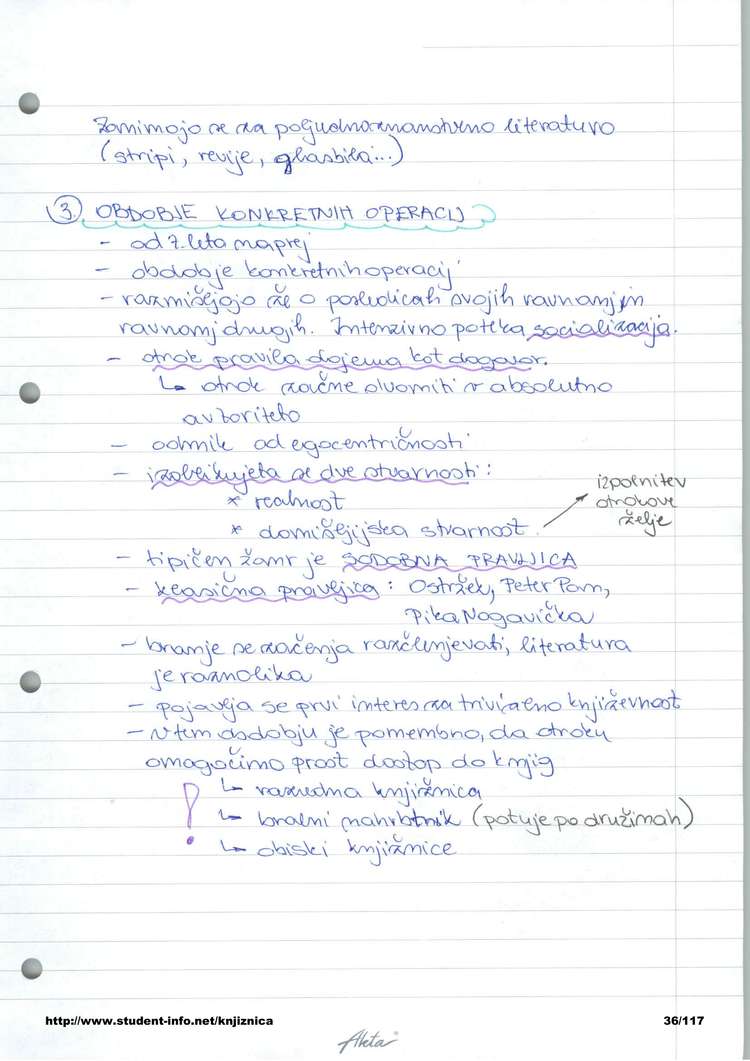 Zanimajo se za poljudnoznanstveno literaturo
(stripi, revije, glasbila...)
3. OBDOBJE KONKRETNIH OPERACIJ
- od 7. leta naprej
- obdobje konkretnih operacij
- razmišljajo že o posledicah svojih ravnanj in
ravnanj drugih. Intenzivno poteka socializacija.
- otrok pravila dojema kot dogovor.
↳ otrok začne dvomiti v absolutno
avtoriteto
- odmik od egocentričnosti
- izoblikujeta se dve stvarnosti:
* realnost
* domišljijska stvarnost
izpolnitev
otrokove
želje
- tipičen žanr je SODOBNA PRAVLJICA
- klasična pravljica: Ostržek, Peter Pan,
Pika Nogavička
- branje se začenja razčlenjevati, literatura
je raznolika
- pojavlja se prvi interes za trivialno književnost
- v tem obdobju je pomembno, da otroku
omogočimo prost dostop do knjig
! ↳ razredna knjižnica
↳ bralni nahrbtnik (potuje po družinah)
↳ obiski knjižnice
http://www.student-info.net/knjiznica
36/117